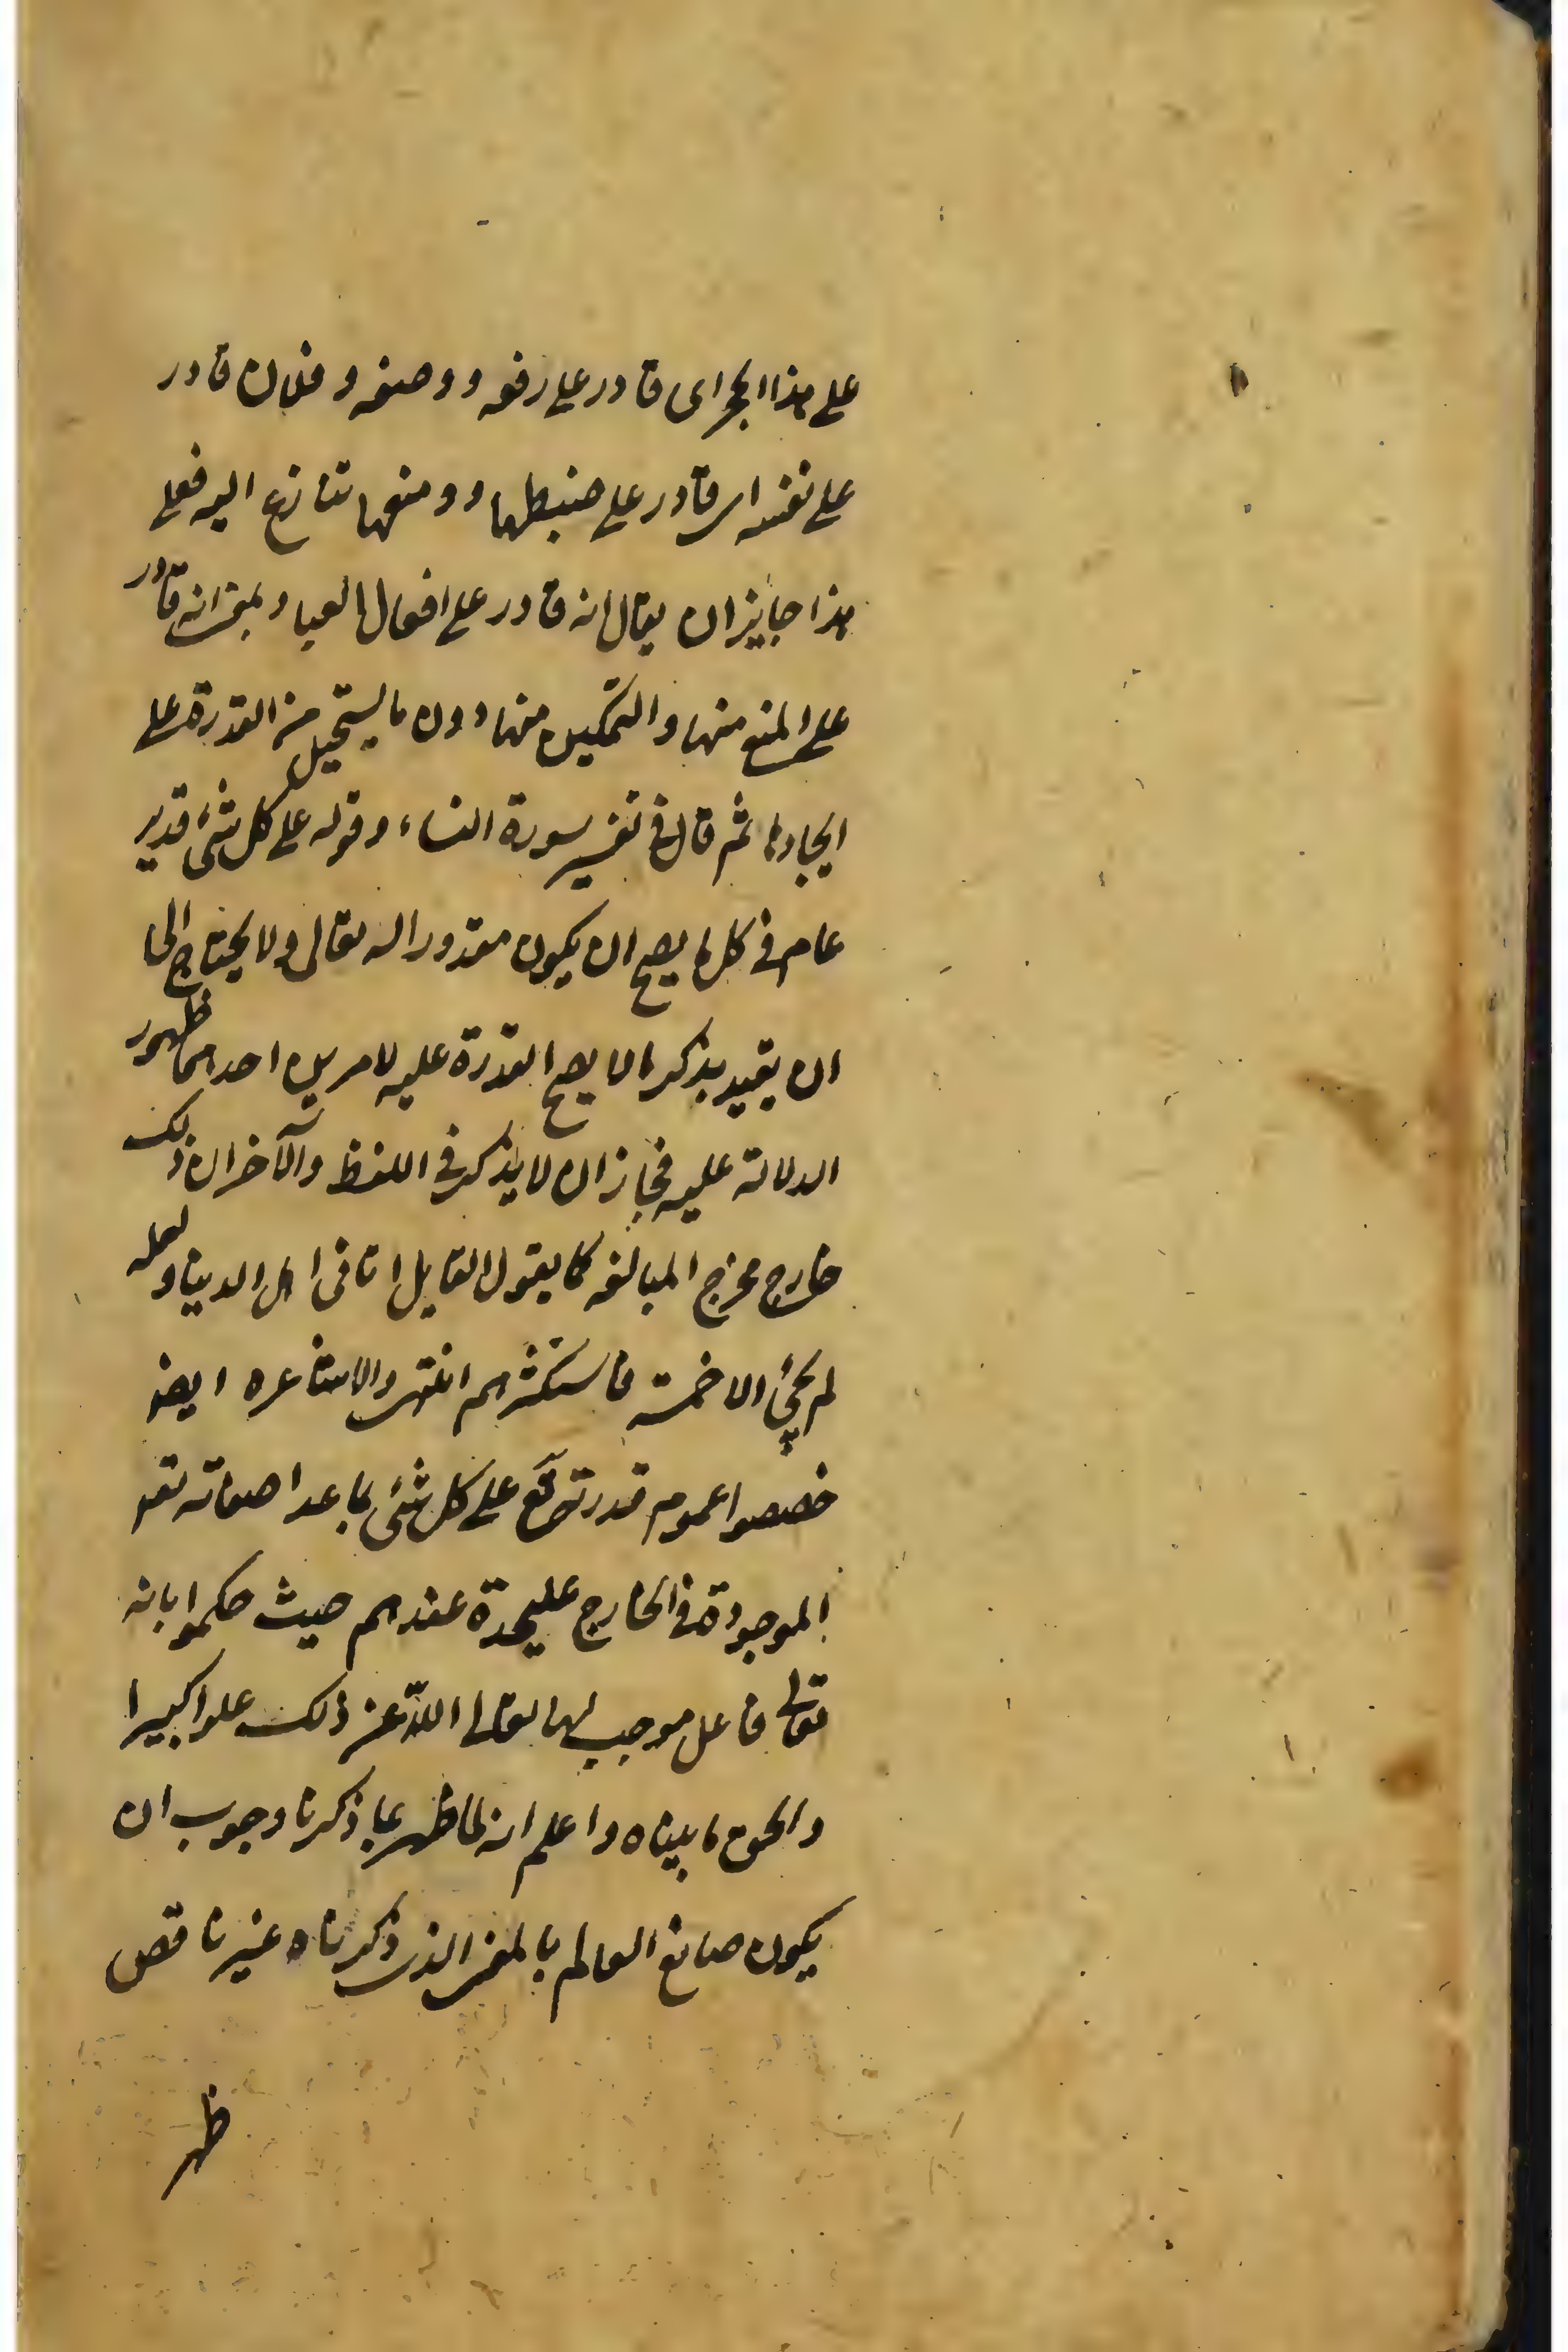 على هذا الحجر اى قادر على رفعه و وضعه و فلان قادر
على نفسه اى قادر على ضبطها و منعها تنازع اليه فعلى
هذا جايز ان يقال انه قادر على افعال العباد بمعنى انه قادر
على المنع منها و التمكين منها دون ما يستحيل من القدرة على
ايجادها ثم قال فى تفسير سورة النساء و قوله على كل شئ قدير
عام فى كل ما يصح ان يكون مقدورا له تعالى ولا يحتاج الى
ان يقيد بذكر ما لا يصح القدرة عليه لامرين احدهما ظهور
الدلالة عليه فجاز ان لا يذكر فى اللفظ والآخر ان ذلك
خارج مخرج المبالغه كما يقول القايل اتانى اهل الدنيا و لعله
لم يجئ الا خمسة فاستكثرهم انتهى والاشاعره ايضا
خصصوا عموم قدرته تع على كل شئ بما عدا صفاته تعه
الموجودة فى الخارج عليحدة عندهم حيث حكموا بانه
تعالى فاعل موجب لها تعالى اللّه عن ذلك علوا كبيرا
والحق ما بيناه واعلم انه لما ظهر بما ذكرنا وجوب ان
يكون صانع العالم بالمعنى الذى ذكرناه غير ناقص
ظهر